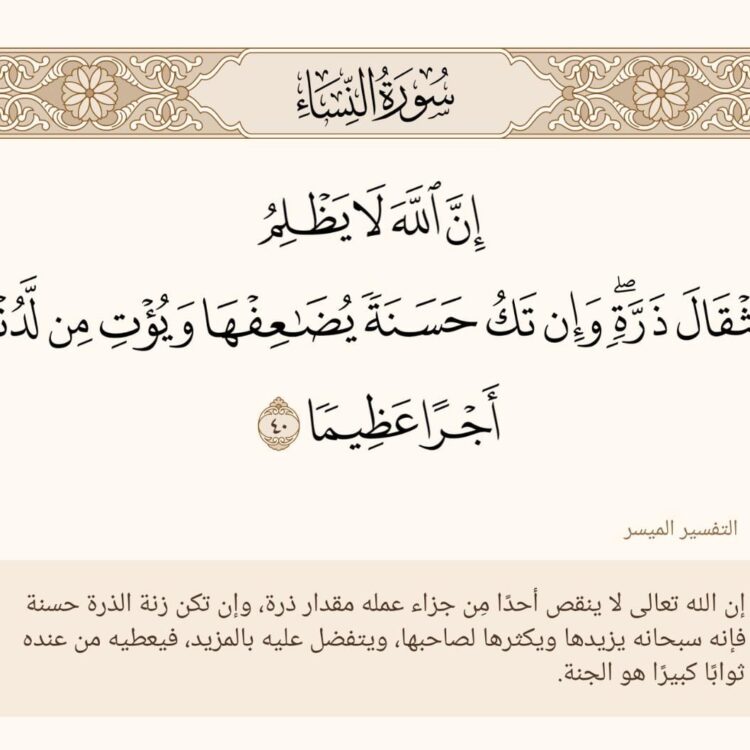 سُورَةُ النِّسَاءِ
إِنَّ ٱللَّهَ لَا يَظْلِمُ
ثْقَالَ ذَرَّةٍۖ وَإِن تَكُ حَسَنَةً يُضَـٰعِفْهَا وَيُؤْتِ مِن لَّدُنْ
أَجْرًا عَظِيمًا ٤٠
التفسير الميسر
إن الله تعالى لا ينقص أحدًا مِن جزاء عمله مقدار ذرة، وإن تكن زنة الذرة حسنة
فإنه سبحانه يزيدها ويكثرها لصاحبها، ويتفضل عليه بالمزيد، فيعطيه من عنده
ثوابًا كبيرًا هو الجنة.